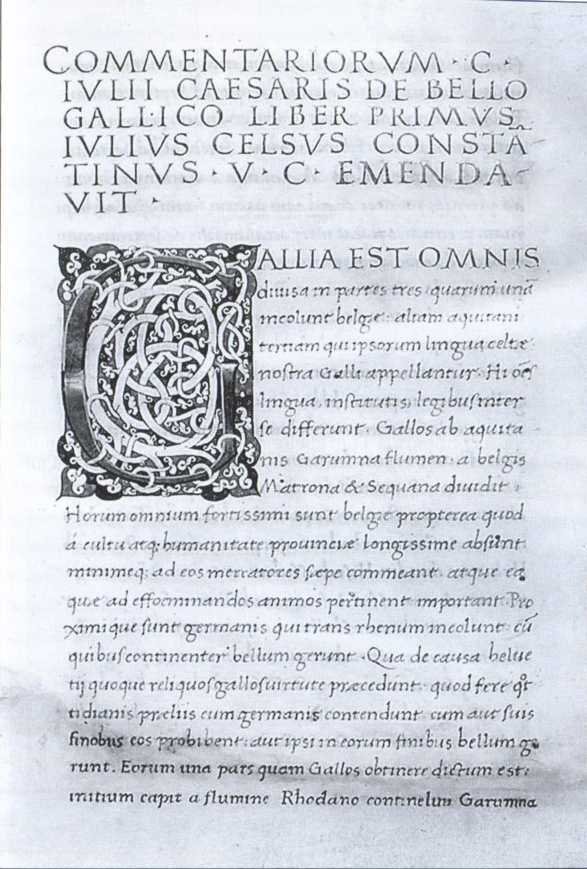 COMMENTARIORVM · C ·
IVLII CAESARIS DE BELLO
GALLICO LIBER PRIMVS
IVLIVS CELSVS CONSTĀ
TINVS · V · C · EMENDA
VIT ·
GALLIA EST OMNIS
diuisa in partes tres quarum unā
incolunt belgæ: aliam aquitani
tertiam qui ipsorum lingua celtæ
nostra Galli appellantur. Hi oēs
lingua, institutis, legibus inter
se differunt. Gallos ab aquita
nis Garumna flumen. a belgis
Matrona & Sequana diuidit.
Horum omnium fortissimi sunt belgæ propterea quod
a cultu atq; humanitate prouinciæ longissime absunt.
minimeq; ad eos mercatores sæpe commeant. atque ea
quæ ad effœminandos animos pertinent important. Pro
ximique sunt germanis qui trans rhenum incolunt. cū
quibus continenter bellum gerunt. Qua de causa helue
tij quoque reliquos gallos uirtute præcedunt. quod fere
tidianis præliis cum germanis contendunt. cum aut suis
finobus eos prohibent: aut ipsi in eorum finibus bellum ge
runt. Eorum una pars quam Gallos obtinere dictum est.
initium capit a flumine Rhodano Garumna